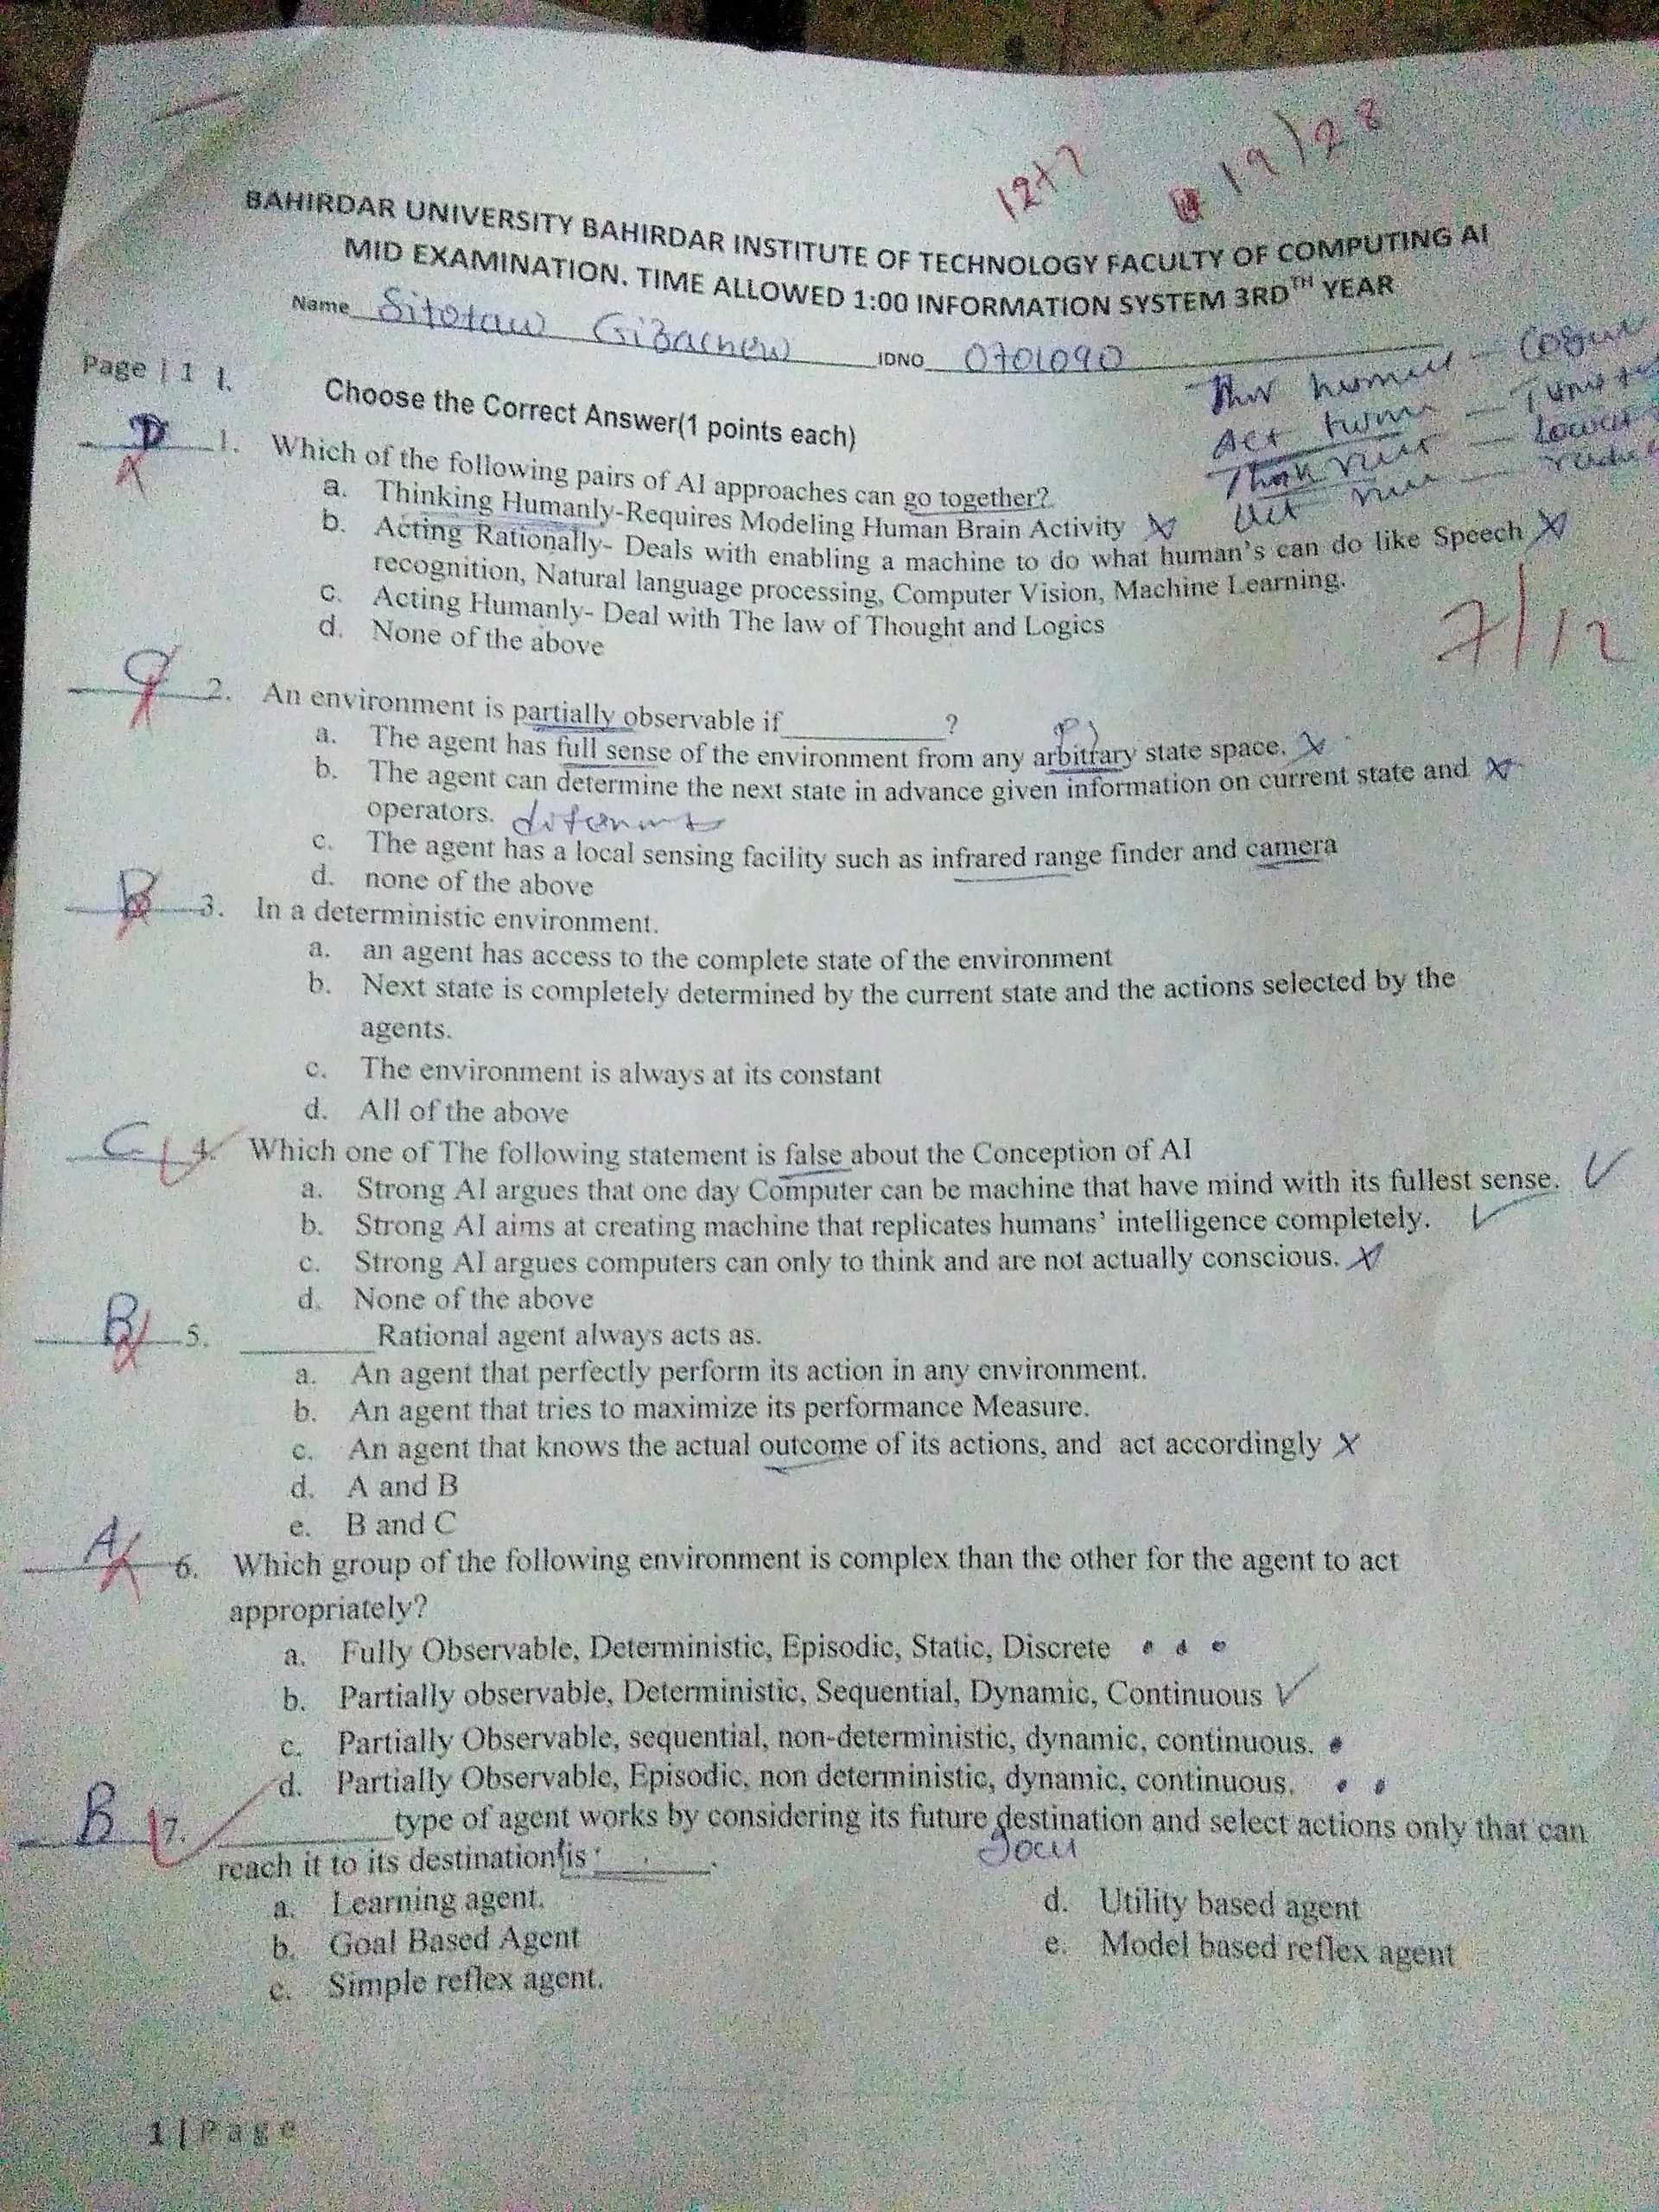 12+7
19/28
BAHIRDAR UNIVERSITY BAHIRDAR INSTITUTE OF TECHNOLOGY FACULTY OF COMPUTING AI
MID EXAMINATION. TIME ALLOWED 1:00 INFORMATION SYSTEM 3RDTH YEAR
Name Sitotaw Gizachew IDNO 0701090
Page | 1 I. Choose the Correct Answer(1 points each)
Act
D 1. Which of the following pairs of AI approaches can go together?
a. Thinking Humanly-Requires Modeling Human Brain Activity
b. Acting Rationally- Deals with enabling a machine to do what human's can do like Speech
recognition, Natural language processing, Computer Vision, Machine Learning.
c. Acting Humanly- Deal with The law of Thought and Logics
d. None of the above
7/12
C 2. An environment is partially observable if__________?
a. The agent has full sense of the environment from any arbitrary state space.
b. The agent can determine the next state in advance given information on current state and
operators.
c. The agent has a local sensing facility such as infrared range finder and camera
d. none of the above
B 3. In a deterministic environment.
a. an agent has access to the complete state of the environment
b. Next state is completely determined by the current state and the actions selected by the
agents.
c. The environment is always at its constant
d. All of the above
C 4. Which one of The following statement is false about the Conception of AI
a. Strong AI argues that one day Computer can be machine that have mind with its fullest sense.
b. Strong AI aims at creating machine that replicates humans' intelligence completely.
c. Strong AI argues computers can only to think and are not actually conscious.
d. None of the above
B 5. ________Rational agent always acts as.
a. An agent that perfectly perform its action in any environment.
b. An agent that tries to maximize its performance Measure.
c. An agent that knows the actual outcome of its actions, and act accordingly
d. A and B
e. B and C
A 6. Which group of the following environment is complex than the other for the agent to act
appropriately?
a. Fully Observable, Deterministic, Episodic, Static, Discrete
b. Partially observable, Deterministic, Sequential, Dynamic, Continuous
c. Partially Observable, sequential, non-deterministic, dynamic, continuous.
d. Partially Observable, Episodic, non deterministic, dynamic, continuous.
B 7. __________type of agent works by considering its future destination and select actions only that can
reach it to its destination is _______.
a. Learning agent.
b. Goal Based Agent
c. Simple reflex agent.
d. Utility based agent
e. Model based reflex agent
1 | Page